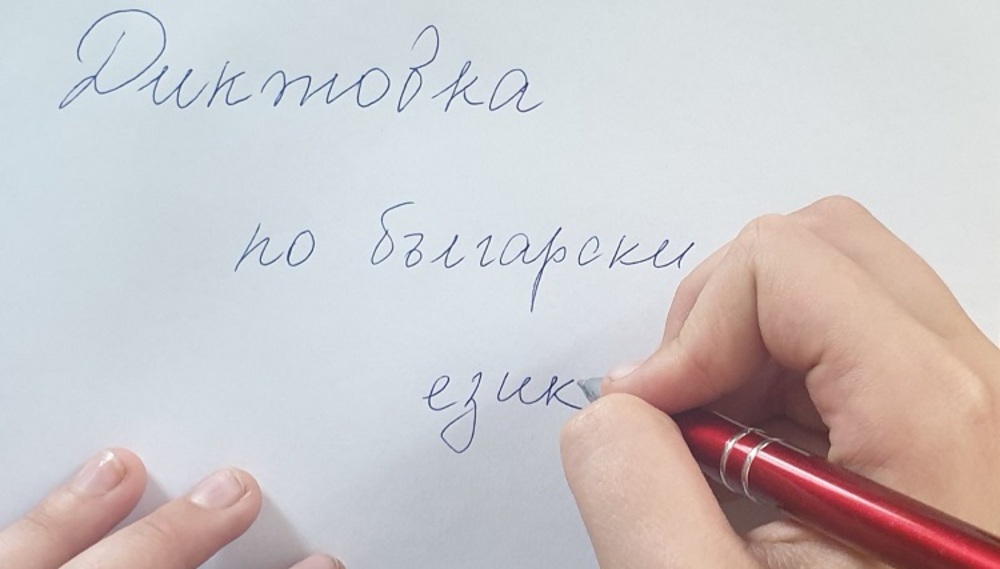 Диктовка
по български
език